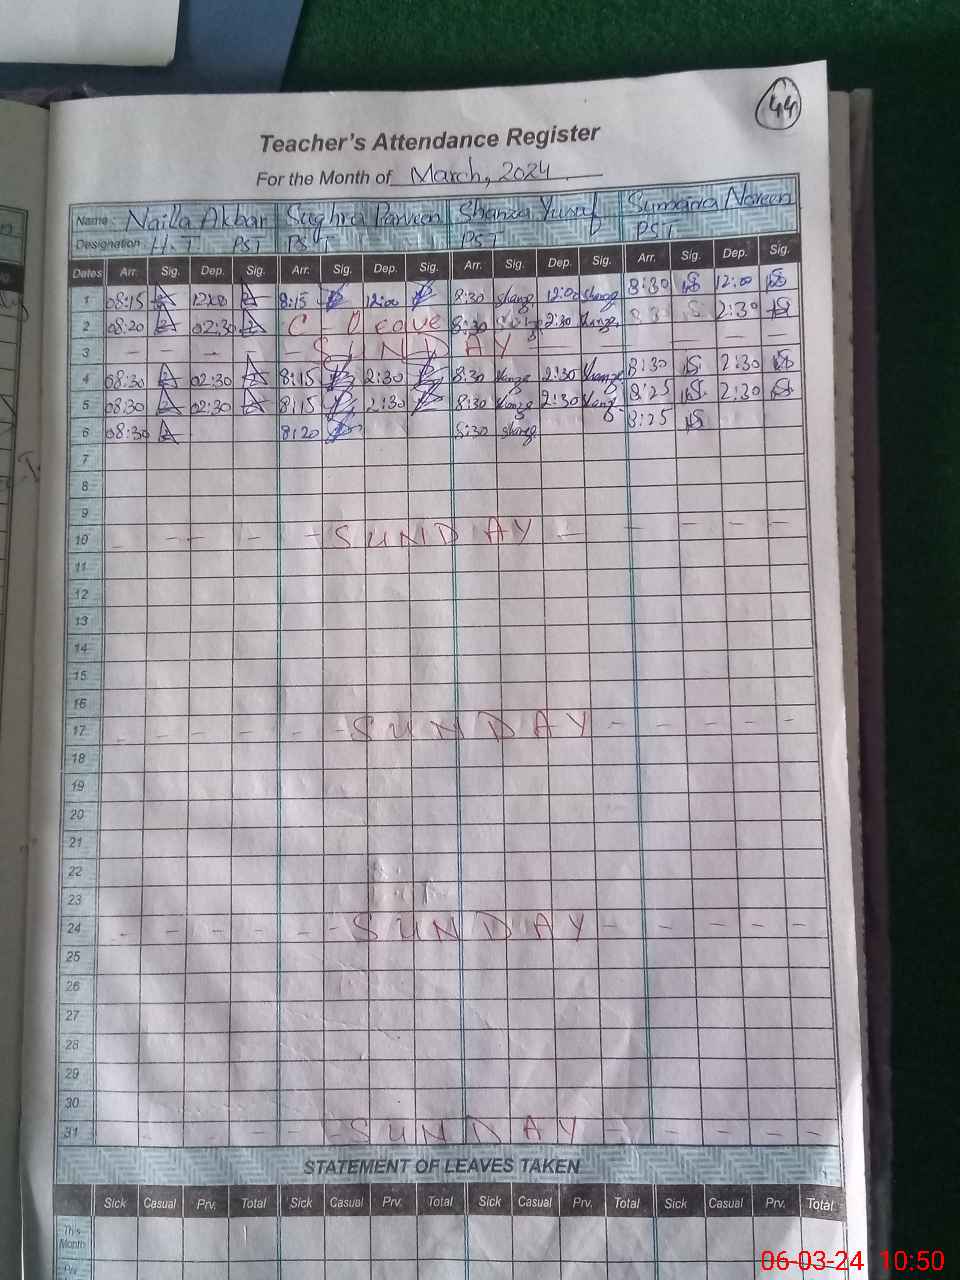 44
Teacher's Attendance Register
For the Month of March, 2024
Name: Nailla Akbar Sughra Parveen Shanza Yusuf Sumaria Noreen
Designation: H.T PST PST PST PST
Dates Arr. Sig. Dep. Sig. Arr. Sig. Dep. Sig. Arr. Sig. Dep. Sig. Arr. Sig. Dep. Sig.
1 08:15 12:00 8:15 12:00 8:30 12:00 8:30 12:00
2 08:20 02:30 C - Leave 8:30 2:30 8:30 2:30
3 - - - - - SUNDAY - - - - -
4 08:30 02:30 8:15 2:30 8:30 2:30 8:30 2:30
5 08:30 02:30 8:15 2:30 8:30 2:30 8:25 2:30
6 08:30 8:20 8:30 8:25
7
8
9
10 - - - - - SUNDAY - - - - -
11
12
13
14
15
16
17 - - - - - - SUNDAY - - - - -
18
19
20
21
22
23
24 - - - - - - SUNDAY - - - - -
25
26
27
28
29
30
31 - - - - - - SUNDAY - - - - -
STATEMENT OF LEAVES TAKEN
Sick Casual Prv. Total Sick Casual Prv. Total Sick Casual Prv. Total Sick Casual Prv. Total
This Month
06-03-24 10:50